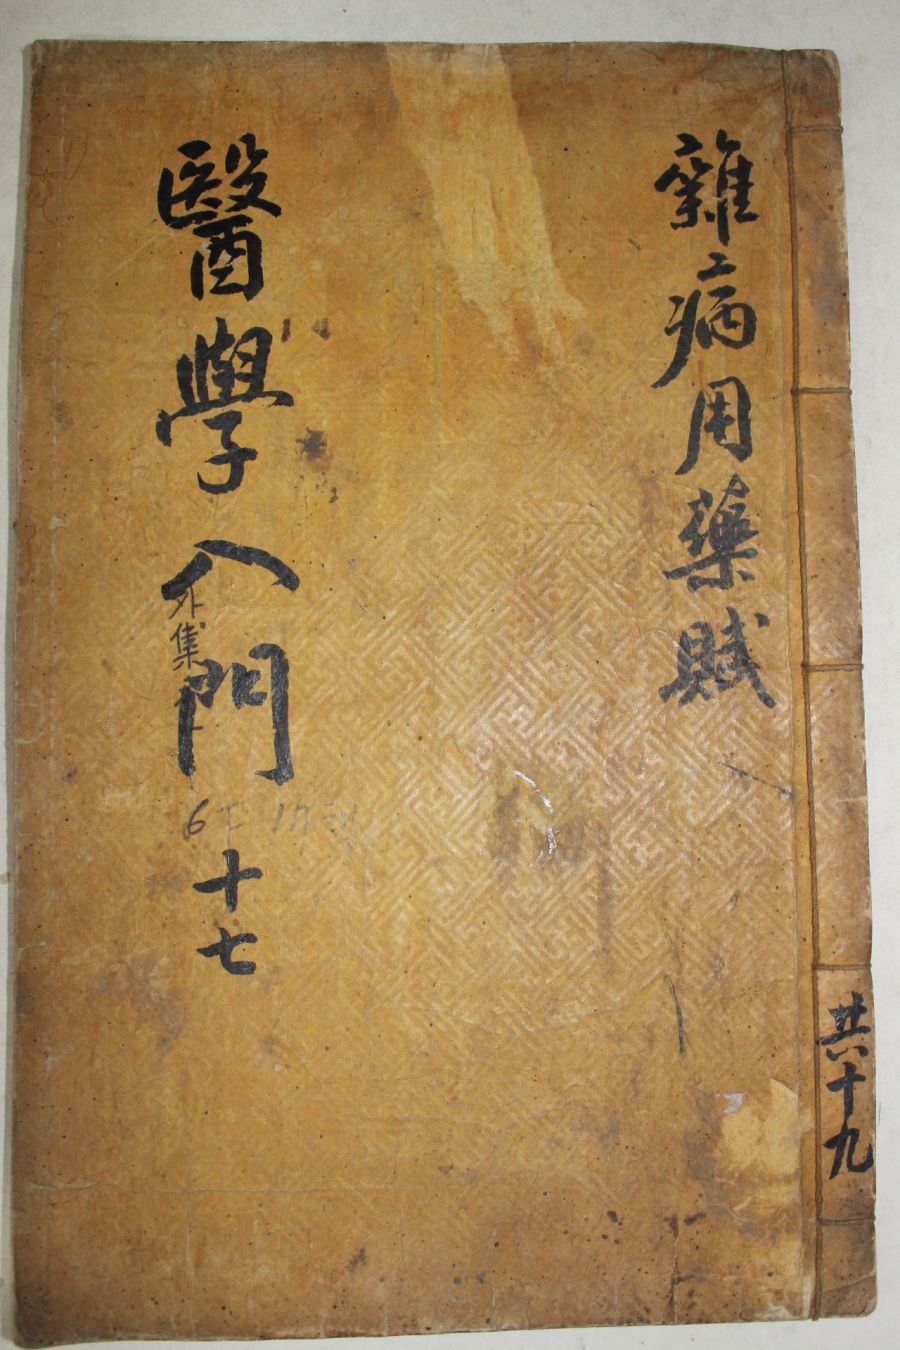 雜病用藥賦
醫學入門
外集
十七
共十九